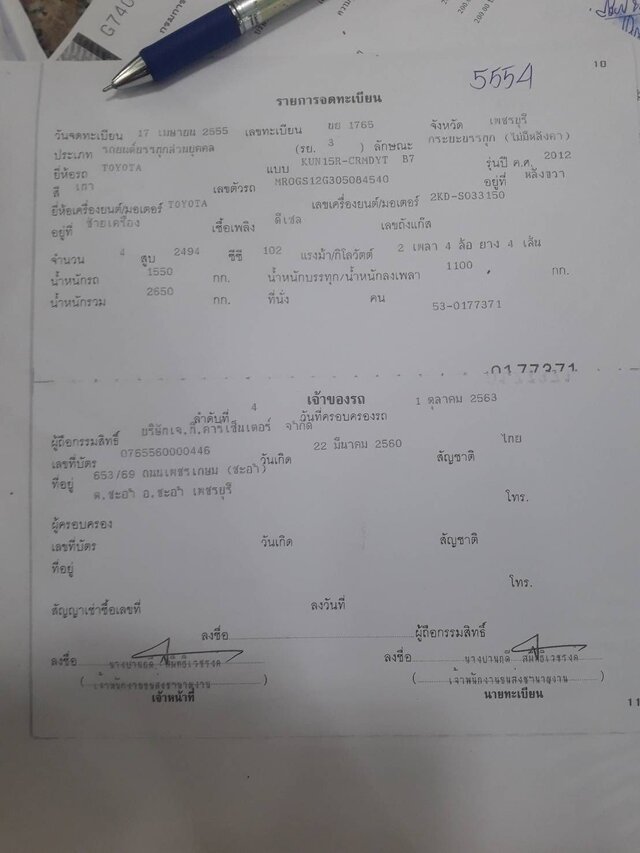 G740
กรมการ
200.00
200.00
10
5554
รายการจดทะเบียน
วันจดทะเบียน 17 เมษายน 2555 เลขทะเบียน บย 1765 จังหวัด เพชรบุรี
ประเภท รถยนต์บรรทุกส่วนบุคคล (รย. 3 ) ลักษณะ กระบะบรรทุก (ไม่มีหลังคา)
ยี่ห้อรถ TOYOTA แบบ KUN15R-CRMDYT B7 รุ่นปี ค.ศ. 2012
สี เทา เลขตัวรถ MR0GS12G305084540 อยู่ที่ หลังขวา
ยี่ห้อเครื่องยนต์/มอเตอร์ TOYOTA เลขเครื่องยนต์/มอเตอร์ 2KD-S033150
อยู่ที่ ซ้ายเครื่อง เชื้อเพลิง ดีเซล เลขถังแก๊ส
จำนวน 4 สูบ 2494 ซีซี 102 แรงม้า/กิโลวัตต์ 2 เพลา 4 ล้อ ยาง 4 เส้น
น้ำหนักรถ 1550 กก. น้ำหนักบรรทุก/น้ำหนักลงเพลา 1100 กก.
น้ำหนักรวม 2650 กก. ที่นั่ง คน
53-0177371
0177371
เจ้าของรถ
ลำดับที่ 4 วันที่ครอบครองรถ 1 ตุลาคม 2563
ผู้ถือกรรมสิทธิ์ บริษัทเจ.ที.คาร์เซ็นเตอร์ จำกัด
เลขที่บัตร 0765560000446 วันเกิด 22 มีนาคม 2560 สัญชาติ ไทย
ที่อยู่ 653/69 ถนนเพชรเกษม (ชะอำ)
ต.ชะอำ อ.ชะอำ เพชรบุรี
โทร.
ผู้ครอบครอง
เลขที่บัตร วันเกิด สัญชาติ
ที่อยู่
โทร.
สัญญาเช่าซื้อเลขที่ ลงวันที่
ลงชื่อ ผู้ถือกรรมสิทธิ์
ลงชื่อ ลงชื่อ
( เจ้าพนักงานขนส่งชำนาญงาน ) ( เจ้าพนักงานขนส่งชำนาญงาน )
เจ้าหน้าที่ นายทะเบียน
11